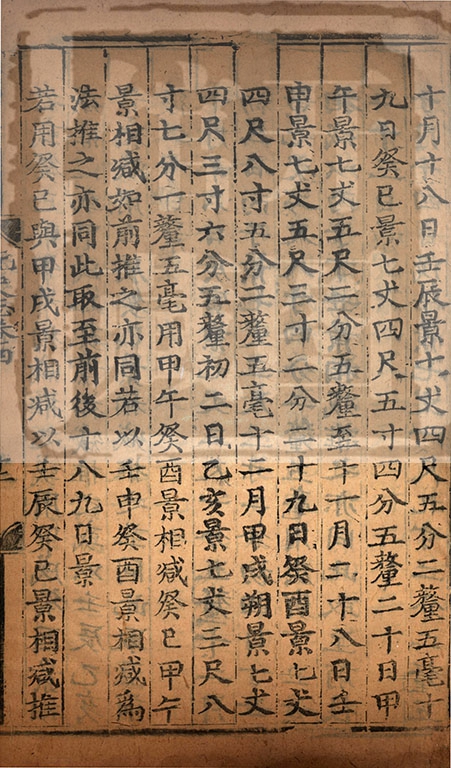 十月十八日壬辰景七丈四尺五分二釐五毫十
九日癸巳景七丈四尺五寸四分五釐二十日甲
午景七丈五尺二分五釐至十一月二十八日壬
申景七丈五尺三寸二分二十九日癸酉景七丈
四尺八寸五分二釐五毫十二月甲戌朔景七丈
四尺三寸六分五釐初二日乙亥景七丈三尺八
寸七分一釐五毫用甲午癸酉景相减癸巳甲午
景相减如前推之亦同若以壬申癸酉景相减為
法推之亦同此取至前後十八九日景
若用癸巳與甲戌景相减以壬辰癸巳景相减推